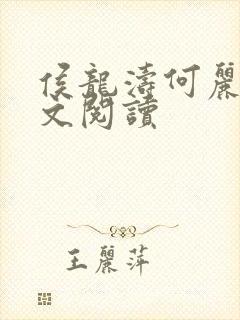 侯龍濤何麗
文閱讀
王麗萍